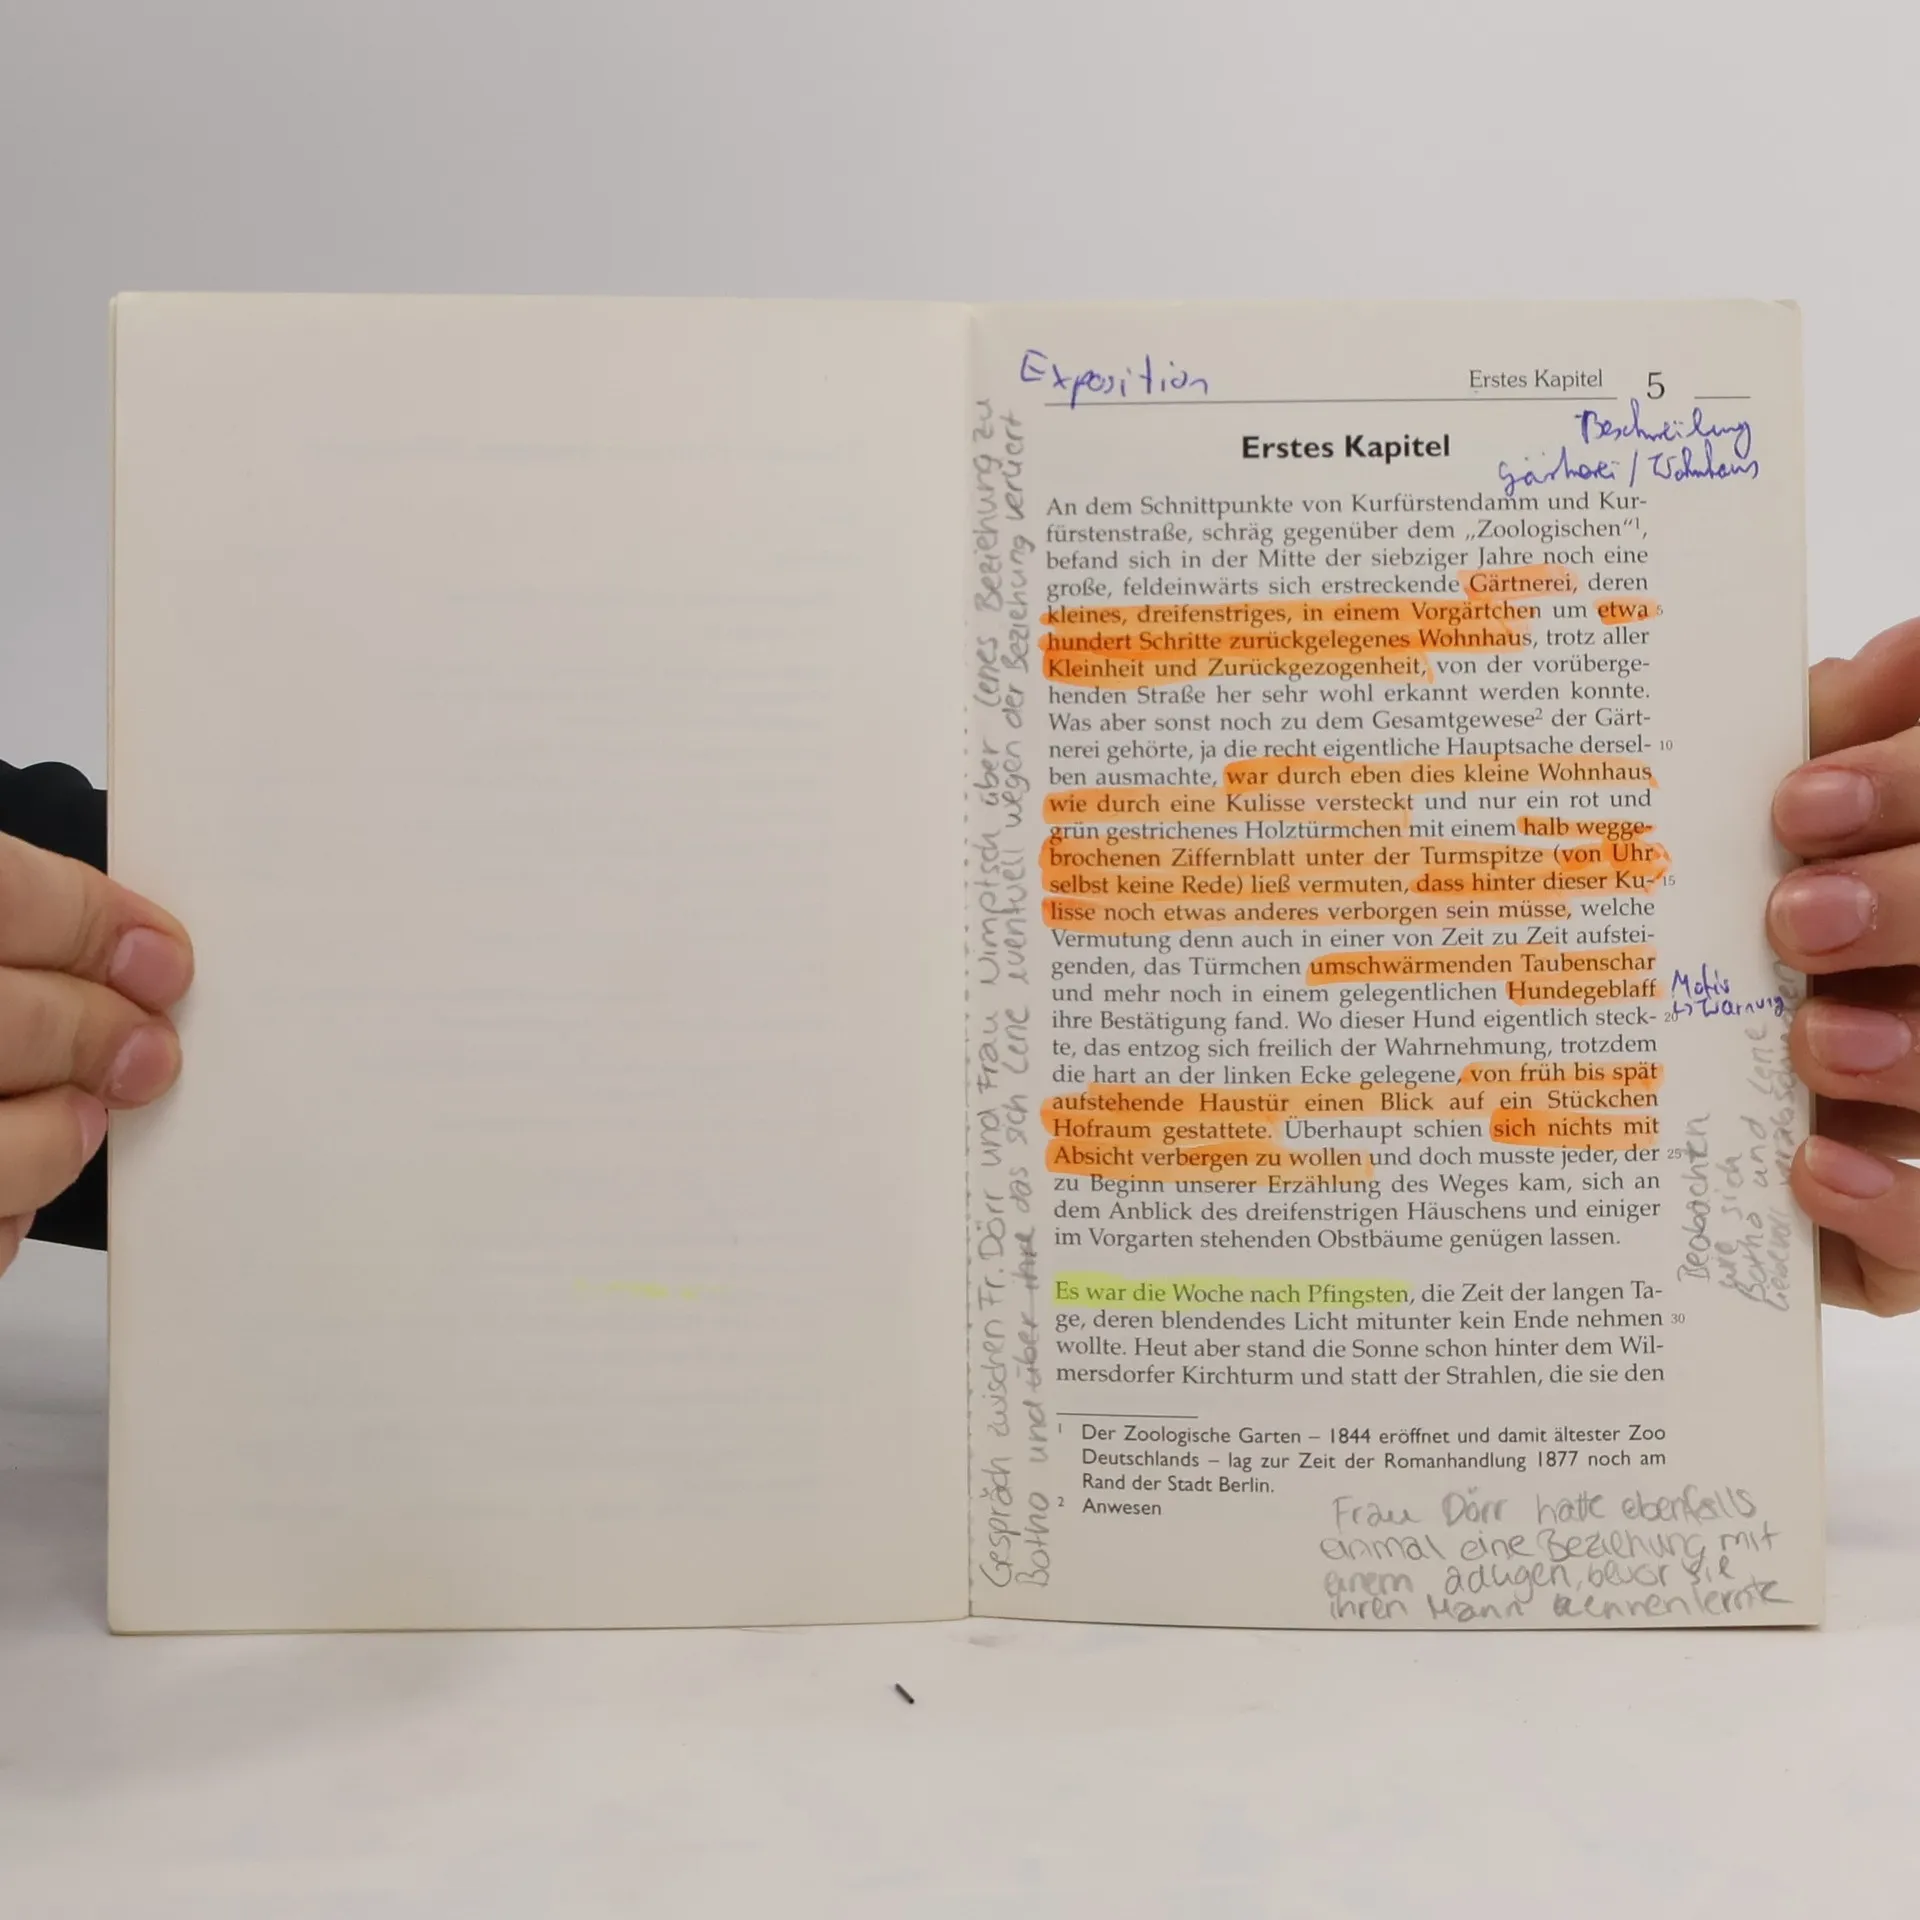 Exposition
Erstes Kapitel 5
Beschreibung
Gärtnerei / Wohnhaus
Erstes Kapitel
An dem Schnittpunkte von Kurfürstendamm und Kur-
fürstenstraße, schräg gegenüber dem „Zoologischen“¹,
befand sich in der Mitte der siebziger Jahre noch eine
große, feldeinwärts sich erstreckende Gärtnerei, deren
kleines, dreifenstriges, in einem Vorgärtchen um etwa 5
hundert Schritte zurückgelegenes Wohnhaus, trotz aller
Kleinheit und Zurückgezogenheit, von der vorüberge-
henden Straße her sehr wohl erkannt werden konnte.
Was aber sonst noch zu dem Gesamtgewese² der Gärt-
nerei gehörte, ja die recht eigentliche Hauptsache dersel- 10
ben ausmachte, war durch eben dies kleine Wohnhaus
wie durch eine Kulisse versteckt und nur ein rot und
grün gestrichenes Holztürmchen mit einem halb wegge-
brochenen Ziffernblatt unter der Turmspitze (von Uhr
selbst keine Rede) ließ vermuten, dass hinter dieser Ku- 15
lisse noch etwas anderes verborgen sein müsse, welche
Vermutung denn auch in einer von Zeit zu Zeit aufstei-
genden, das Türmchen umschwärmenden Taubenschar
und mehr noch in einem gelegentlichen Hundegeblaff
ihre Bestätigung fand. Wo dieser Hund eigentlich steck- 20
te, das entzog sich freilich der Wahrnehmung, trotzdem
die hart an der linken Ecke gelegene, von früh bis spät
aufstehende Haustür einen Blick auf ein Stückchen
Hofraum gestattete. Überhaupt schien sich nichts mit
Absicht verbergen zu wollen und doch musste jeder, der 25
zu Beginn unserer Erzählung des Weges kam, sich an
dem Anblick des dreifenstrigen Häuschens und einiger
im Vorgarten stehenden Obstbäume genügen lassen.
Es war die Woche nach Pfingsten, die Zeit der langen Ta-
ge, deren blendendes Licht mitunter kein Ende nehmen 30
wollte. Heut aber stand die Sonne schon hinter dem Wil-
mersdorfer Kirchturm und statt der Strahlen, die sie den
¹ Der Zoologische Garten – 1844 eröffnet und damit ältester Zoo
Deutschlands – lag zur Zeit der Romanhandlung 1877 noch am
Rand der Stadt Berlin.
² Anwesen
Motiv
↳ Warnung
Beobachten
wie sich
Botho und Lene
liebevoll verabschieden
Gespräch zwischen Fr. Dörr und Frau Nimptsch über Lenes Beziehung zu
Botho und über ihre das sich Lene eventuell wegen der Beziehung verliert
Frau Dörr hatte ebenfalls
einmal eine Beziehung mit
einem adligen, bevor sie
ihren Mann kennenlernte